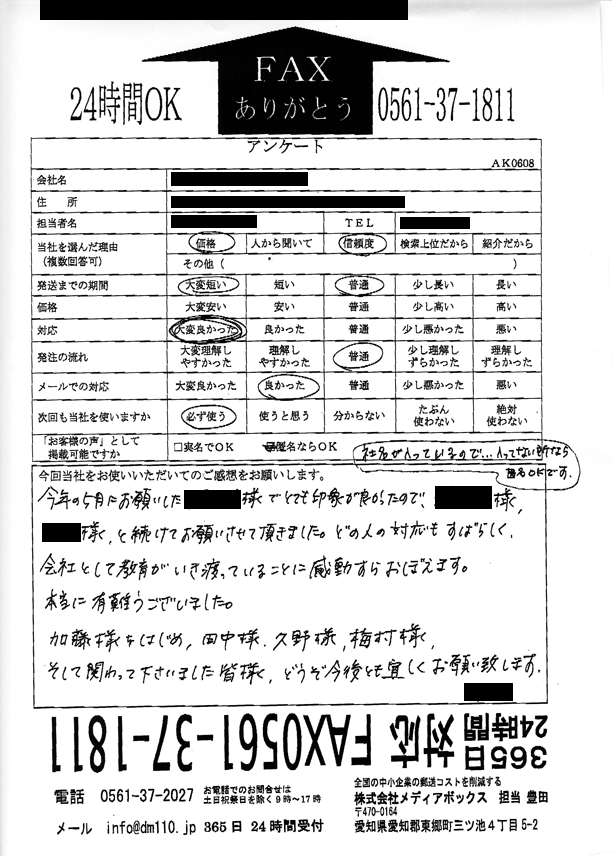 FAX
ありがとう
24時間OK
0561-37-1811
アンケート
AK0608
会社名
住 所
担当者名 TEL
当社を選んだ理由 価格 人から聞いて 信頼度 検索上位だから 紹介だから
(複数回答可) その他( )
発送までの期間 大変短い 短い 普通 少し長い 長い
価格 大変安い 安い 普通 少し高い 高い
対応 大変良かった 良かった 普通 少し悪かった 悪い
発注の流れ 大変理解しやすかった 理解しやすかった 普通 少し理解しずらかった 理解しずらかった
メールでの対応 大変良かった 良かった 普通 少し悪かった 悪い
次回も当社を使いますか 必ず使う 使うと思う 分からない たぶん使わない 絶対使わない
「お客様の声」として
掲載可能ですか □実名でOK 匿名ならOK
社名が入っているので…入ってない所なら
匿名OKです。
今回当社をお使いいただいてのご感想をお願いします。
今年の5月にお願いした 様でとても印象が良かったので、 様,
様, と続けてお願いさせて頂きました。どの人の対応もすばらしく、
会社として教育がいき渡っていることに感動すらおぼえます。
本当に有難うございました。
加藤様をはじめ、田中様、久野様、梅村様、
そして関わって下さいました皆様、どうぞ今後とも宜しくお願い致します。
365日
24時間
対応
FAX0561-37-1811
電話 0561-37-2027 お電話でのお問合せは
土日祝祭日を除く9時~17時
メール info@dm110.jp 365日24時間受付
全国の中小企業の郵送コストを削減する
株式会社メディアボックス 担当 豊田
〒470-0164
愛知県愛知郡東郷町三ツ池4丁目5-2